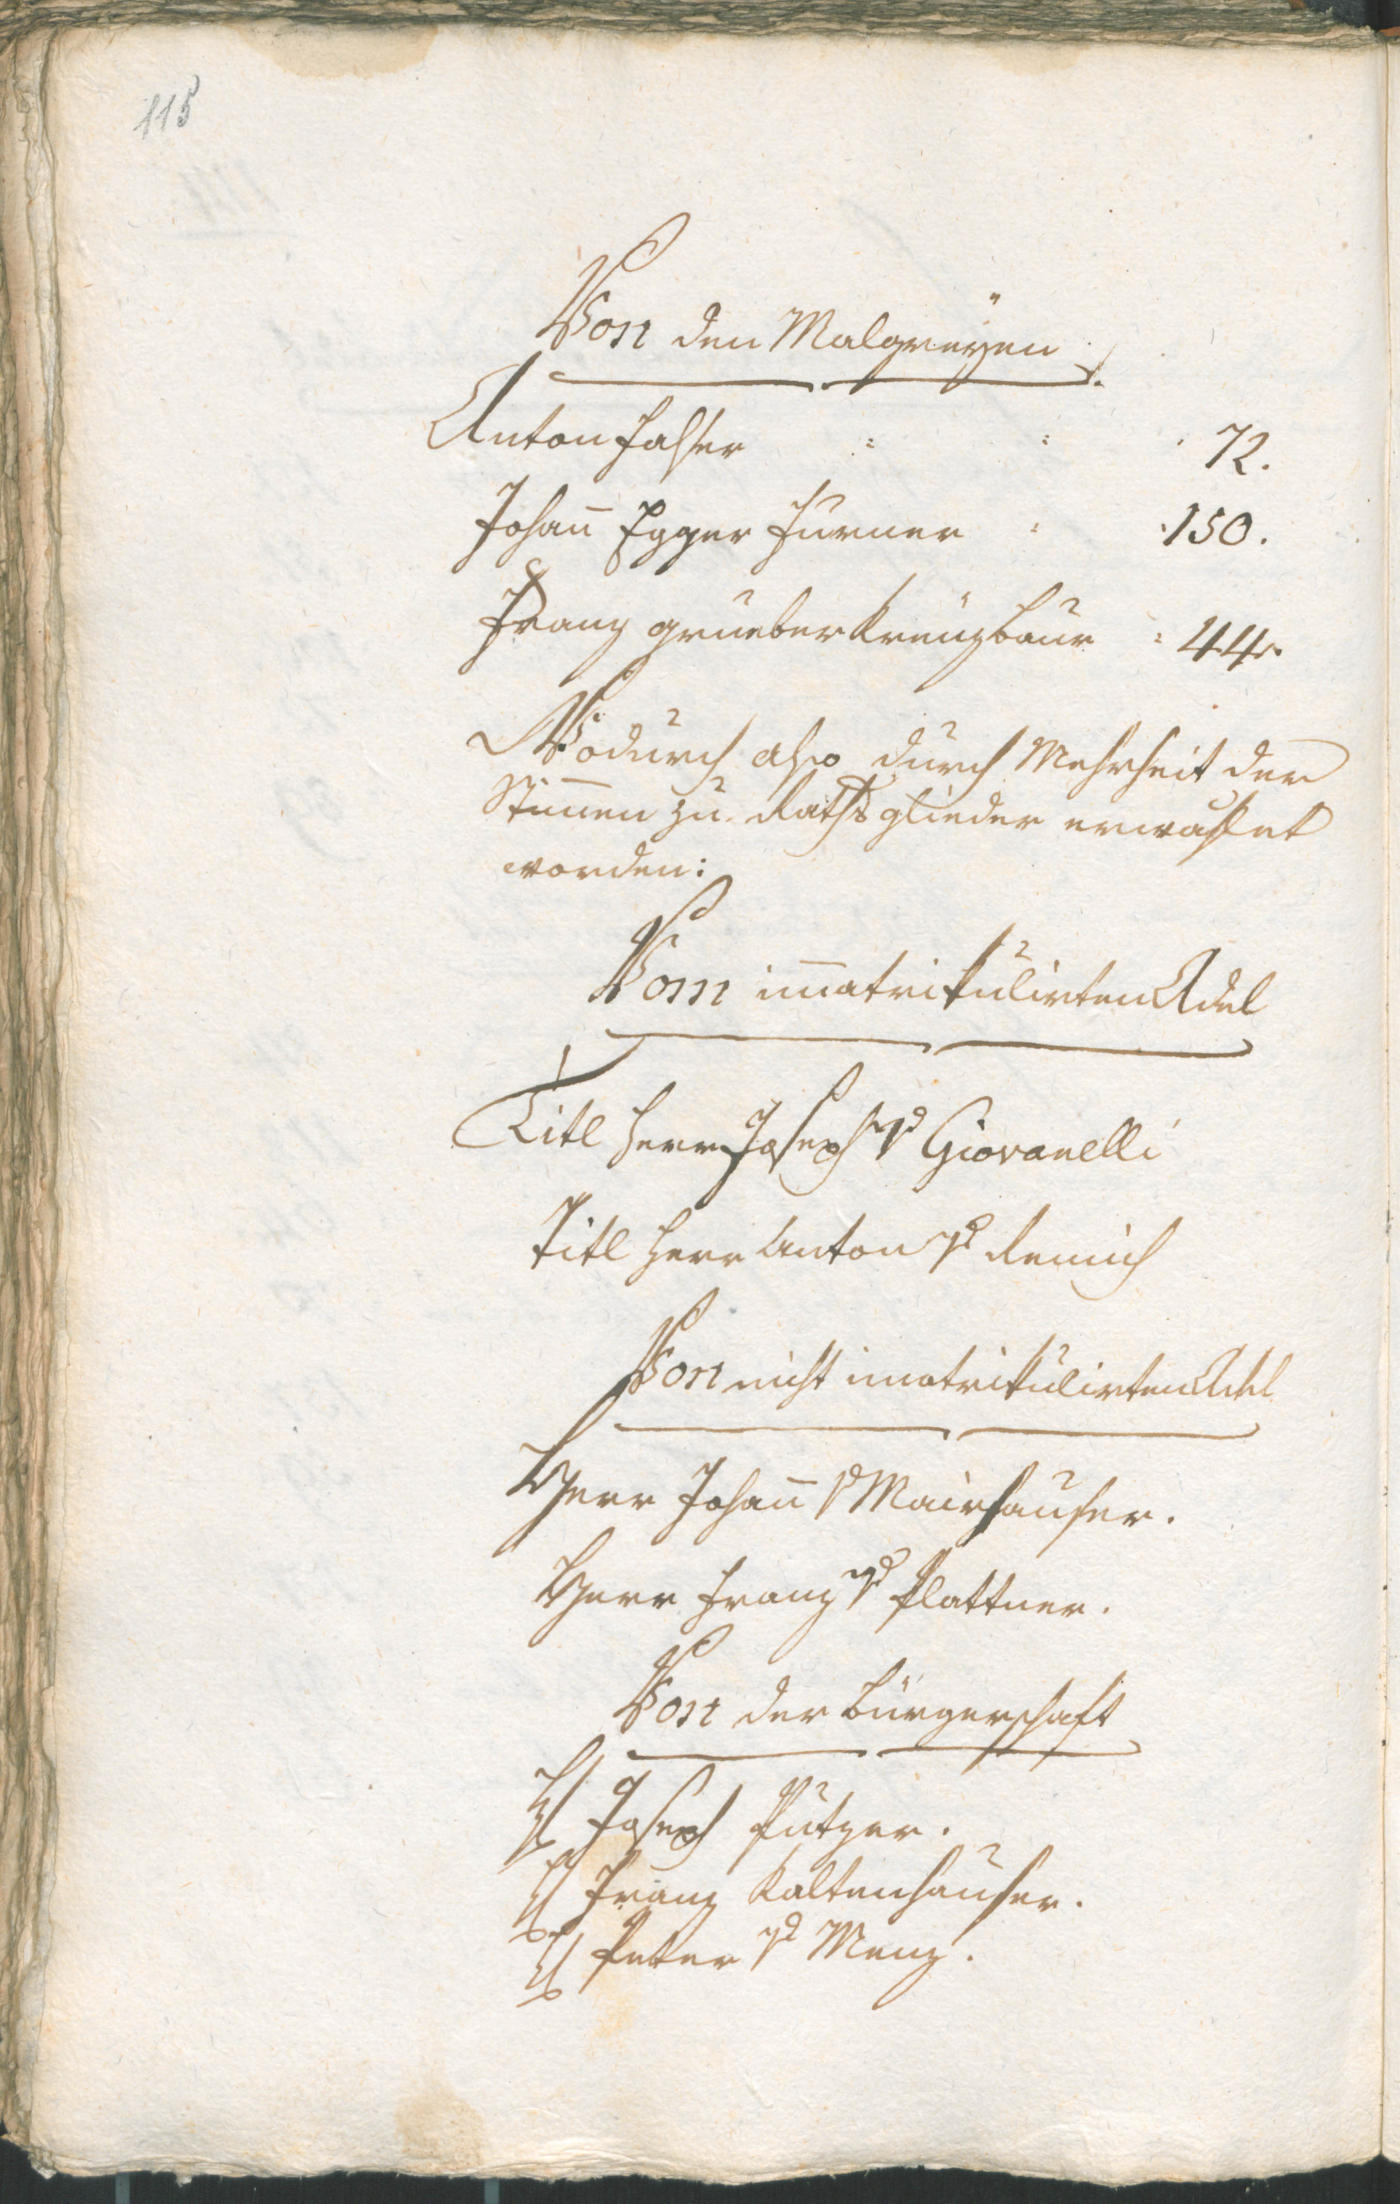 115
Von den Malgreÿen
Anton Fasser : : . 72.
Johan̄ Egger Furner : . 150.
Franz grueber Kreuzbaur : 44.
Wodurch also durch Mehrheit der
Stim̄en zu Rathsglieder erwählet
worden:
Vom im̄atrikulirten Adel
Titl Herr Joseph v Giovanelli
Titl Herr Anton v Remich
Von nicht imatrikulirten Adel
Herr Johan̄ v Mairhauser.
Herr Franz v Plattner.
Von der Bürgerschaft
H Joseph Putzer.
H Franz Kaltenhauser.
H Peter v Menz.